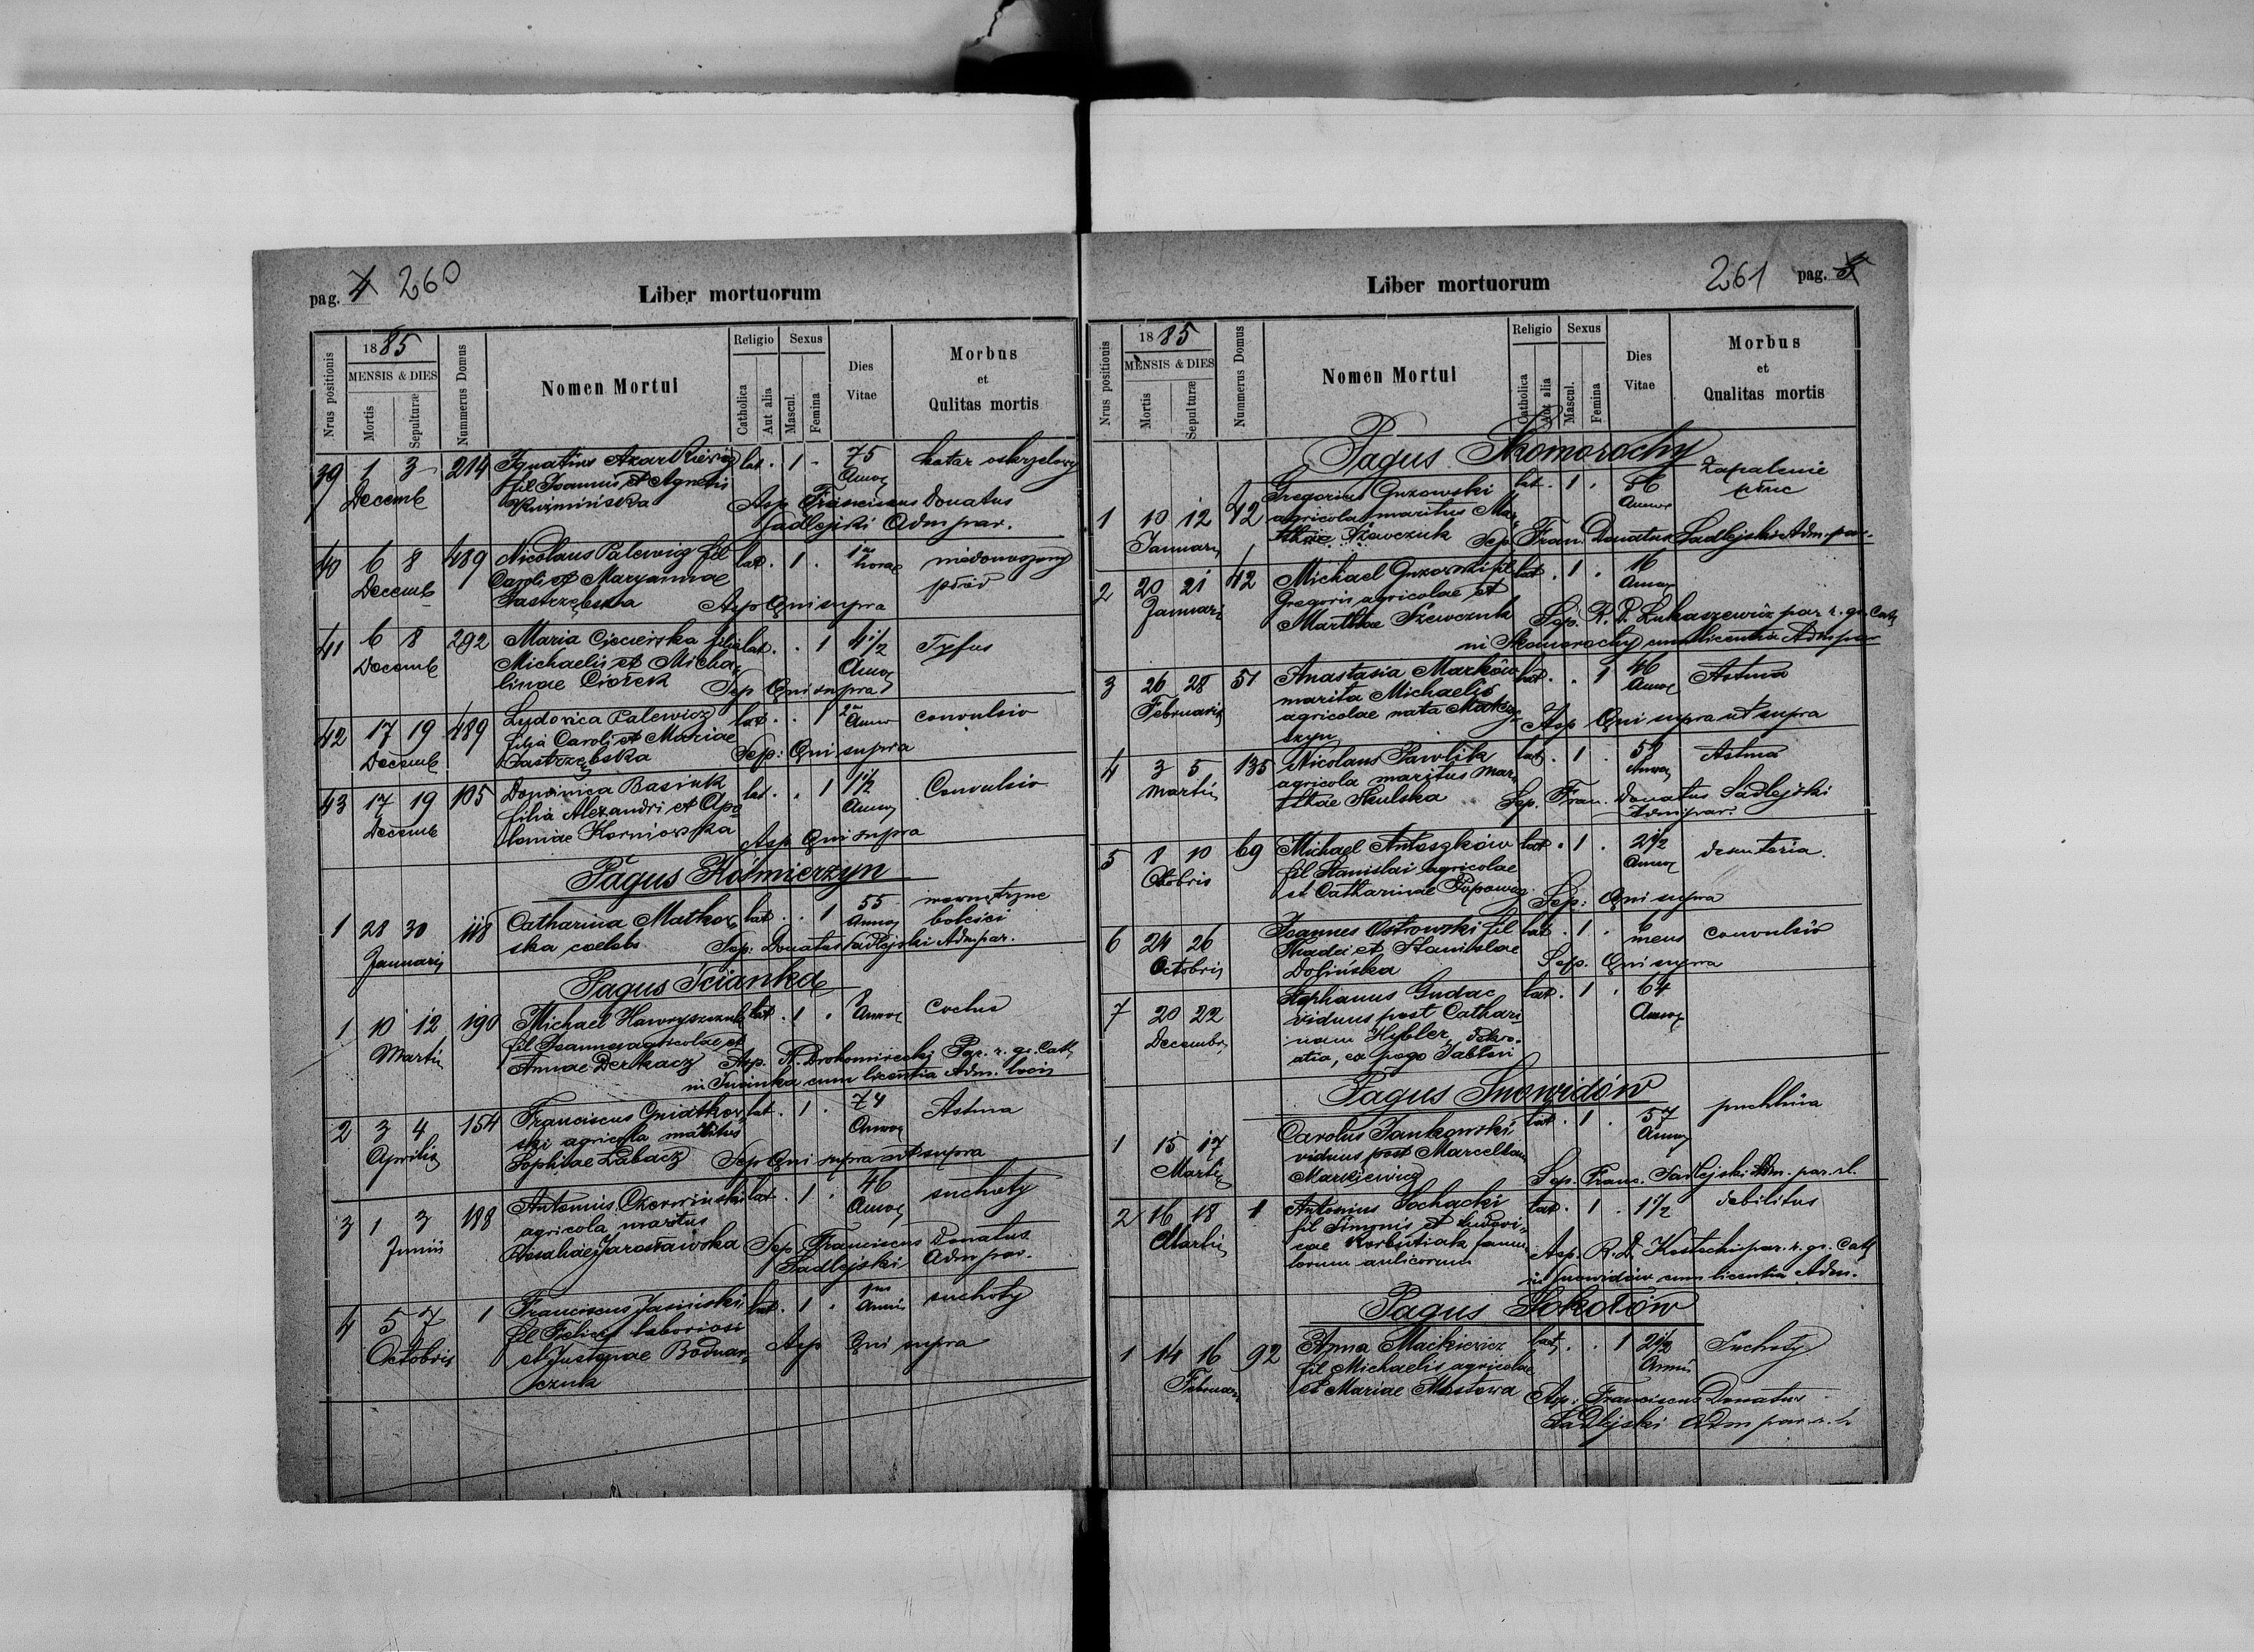 pag. 4 260
Liber mortuorum
Nrus positionis
1885
MENSIS & DIES
Mortis
Sepulturæ
Nummerus Domus
Nomen Mortui
Religio
Catholica
Aut alia
Sexus
Mascul.
Femina
Dies
Vitae
Morbus
et
Qulitas mortis
39 1 3 214 Ignatius lat. 1 75 katar oskrzelowy
Decemb fil Joannis et Agnetis Annor
Kuźmińska Sep Franciscus Donatus
Sadlejski Adm par.
40 6 8 489 Nicolaus Palewicz fil lat. 1 . horae niedonoszony
Decemb Caroli et Maryannae płód
Jastrzębska Sep Qui supra
41 6 8 292 Maria filia lat. . 1 4 1/2 Tyfus
Decemb Michaelis et Micha Annor
linae Ciołek Sep Qui supra
42 17 19 489 Ludovica Palewicz lat. . 1 convulsio
Decemb filia Caroli et Mariae
Jastrzębska Sep: Qui supra
43 17 19 105 Dominica Basiuk lat. . 1 1 1/2 Convulsio
Decemb filia Alexandri et Apo Annor
loniae Korniowska Sep Qui supra
Pagus Kośmierzyn
1 28 30 118 Catharina Matkow lat. . 1 55 wewnętrzne
Januarii ska caelebs Annor boleści
Sep: Donatus Sadlejski Adm par.
Pagus Ścianka
1 10 12 190 Michael Hawryszczuk lat. 1 . Annor
Martii fil Joannes agricolae et
Annae Derkacz Sep. Par. r. gr. Cath
in cum licentia Adm. loci
2 3 4 154 Franciscus Gniatkow lat. 1 . 74 Astma
Aprilis ski agricola maritus Annor
Sophiae Łabacz Sep Qui supra ut supra
3 1 3 188 Antonius Czerwiński lat. 1 . 46 suchoty
Junii agricola maritus Annor
Rosaliae Jarosławska Sep Franciscus Donatus
Sadlejski Adm par.
4 5 7 1 Franciscus Jasiński lat. 1 . suchoty
Octobris fil Felicis laboriosi
et Justynae Bodnar Sep Qui supra
czuk
Liber mortuorum
261 pag. 5
Nrus positionis
1885
MENSIS & DIES
Mortis
Sepulturæ
Nummerus Domus
Nomen Mortui
Religio
Catholica
Aut alia
Sexus
Mascul.
Femina
Dies
Vitae
Morbus
et
Qualitas mortis
Pagus Skomorochy
1 10 12 42 Gregorius Guzowski lat. 1 . 56 Zapalenie
Januarii agricola maritus Mar Annor płuc
thae Szewczuk Sep. Fran. Donatus Sadlejski Adm. par.
2 20 21 42 Michael Guzowski fil lat . 1 . 16
Januarii Gregorii agricolae et Annor
Marthae Szewczuk Sep. R. D. Łukaszewicz par r. gr. Cath
in Skomorochy cum licentia Adm par
3 26 28 51 Anastasia Marków lat . . 1 46 Astma
Februarii marita Michaelis Annor
agricolae nata
Sep Qui supra ut supra
4 3 5 135 Nicolaus Pawlik lat. 1 . Astma
Martii agricola maritus Mar Annor
thae Skulska Sep. Fran. Donatus Sadlejski
Adm par.
5 8 10 69 Michael Antoszków lat . 1 . 2 1/2 desenteria.
Octobris fil Stanislai agricolae Annor
et Catharinae Sep: Qui supra
6 24 26 Joannes Ostrowski fil lat. 1 . 6 convulsio
Octobris Thadei et Stanislae mens
Dolińska Sep. Qui supra
7 20 22 Stephanus Gudac lat. 1 . 64
Decembris viduus post Cathari Annor
nam Hybler,
ex pago
Pagus Snowidów
1 15 17 Carolus Jankowski lat. 1 . 57 puchlina
Martii viduus post Marcellam Annor
Markiewicz Sep. Franc. Sadlejski Adm. par. r. l.
2 16 18 1 Antonius Sochacki lat. 1 . 1 1/2 debilitas
Martii fil Simonis et Ludovi
cae Korbutiak famu
lorum aulicorum Sep. R. D. par. r. gr. Cath
in Snowidów cum licentia Adm.
Pagus Sokołów
1 14 16 92 Anna Mackiewicz lat. . 1 2 1/2 Suchoty
Februar fil Michaelis agricolae Annor
et Mariae Mostowa Sep: Franciscus Donatus
Sadlejski Adm par. r. l.